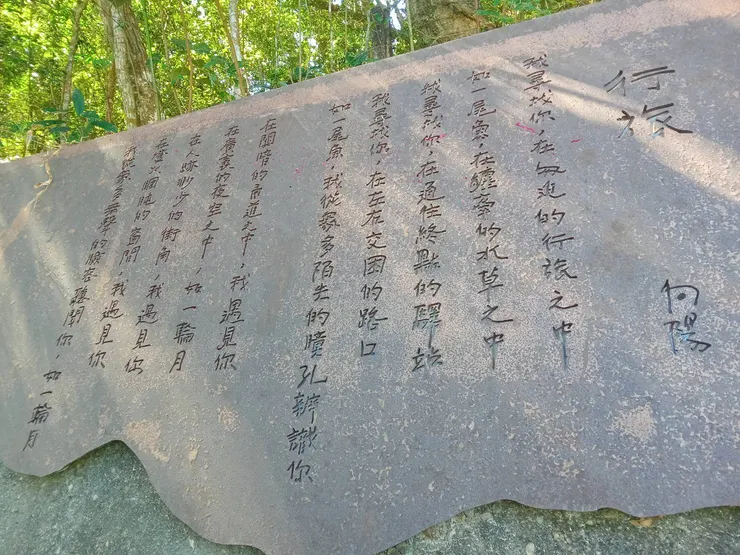 行旅
向陽
我尋找你，在匆迫的行旅之中
如一尾魚，在纏牽的水草之中
我尋找你，在通往終點的驛站
我尋找你，在左右交困的路口
如一尾魚，我從眾多陌生的瞳孔辨識你
在闃暗的甬道之中，我遇見你
在廣袤的夜空之中，如一輪月
在人跡稀少的街角，我遇見你
在燈火闌珊的窗間，我遇見你
我從眾多無聲的臉容聽聞你，如一輪月